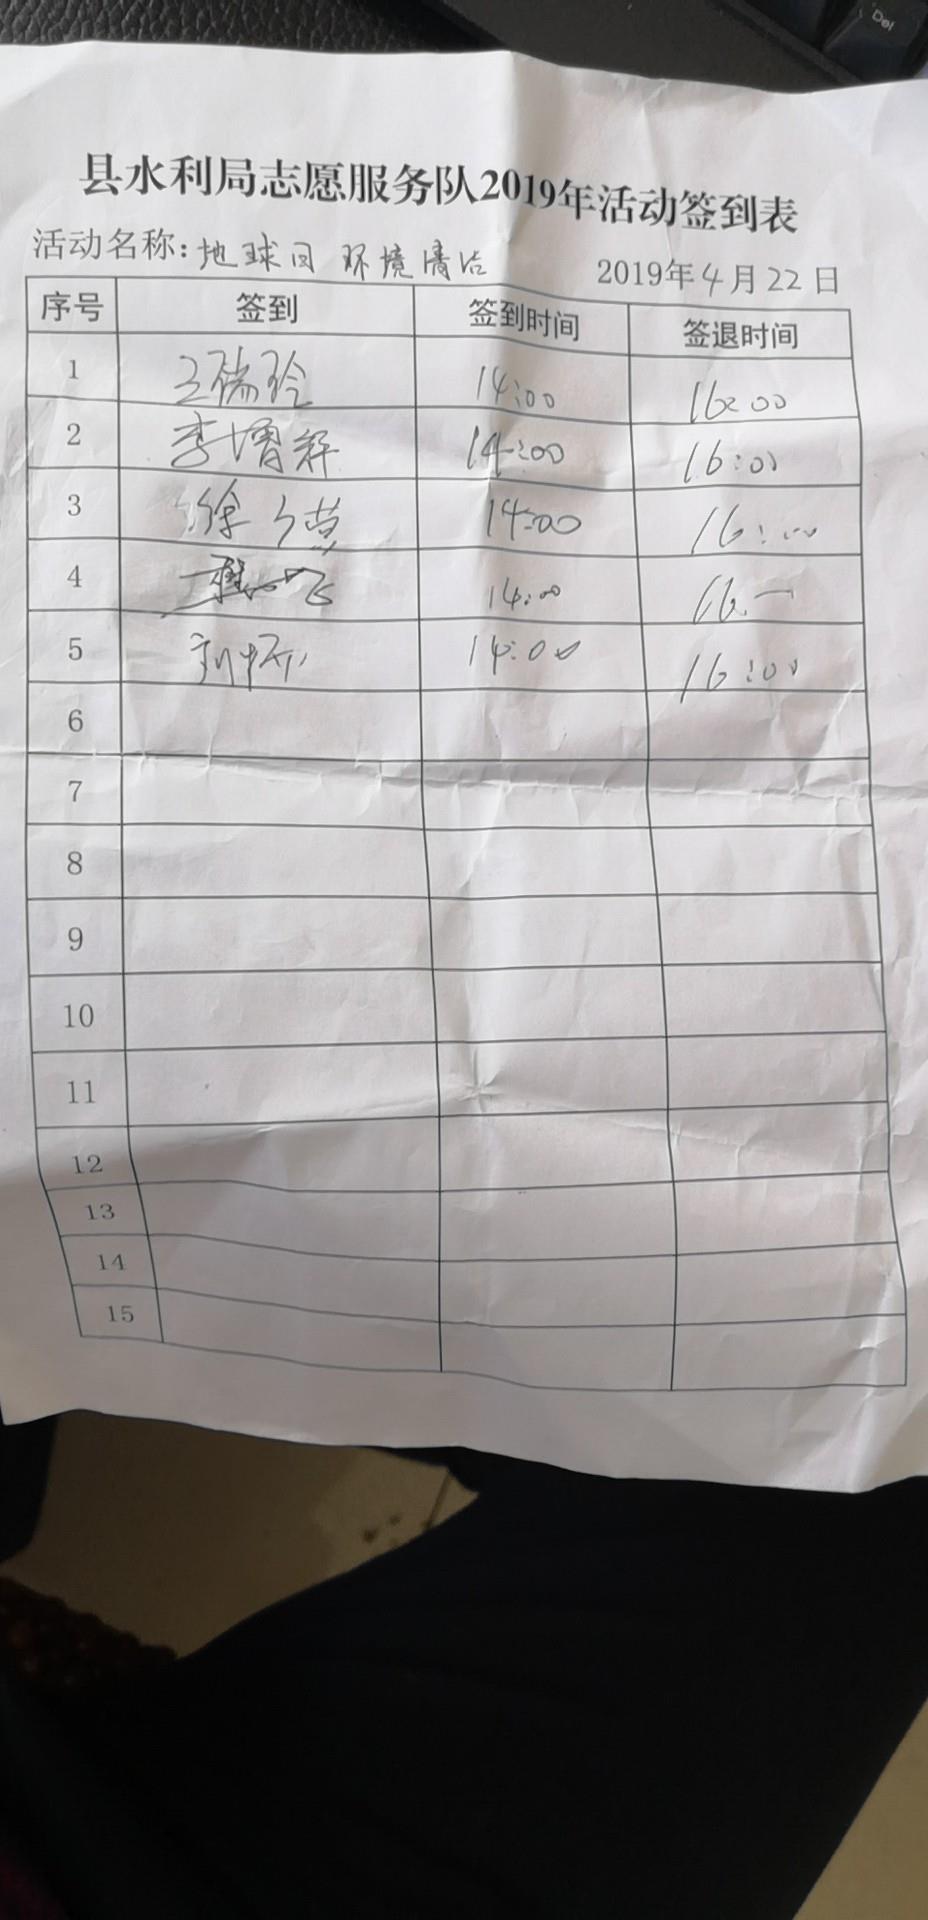 Del
县水利局志愿服务队2019年活动签到表
活动名称:地球日 环境清洁 2019年4月22日
序号 签到 签到时间 签退时间
1 王瑞玲 14:00 16:00
2 李增辉 14:00 16:00
3 徐 14:00 16:00
4 14:00 16:
5 刘怀 14:00 16:00
6
7
8
9
10
11
12
13
14
15